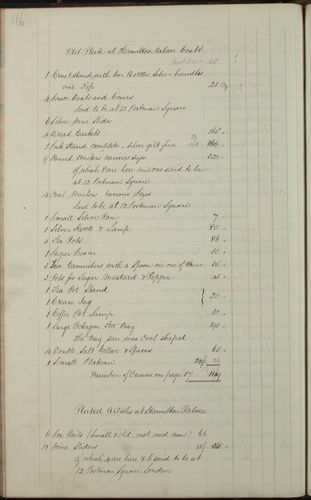 116
Old Plate at Hamilton Palace Contd
1 Cruet Stand with ten Bottles Silver handles
and Top 21
4 Sauce Boats and Covers
Said to be at 12 Portman Square
6 Silver Wine Slides
4 Bread Baskets 165
1 Ink Stand complete - Silver gilt fine
9 Round Waiters various sizes 220
of which are here and one said to be
at 12 Portman Square
4 Oval Waiters various sizes
Said to be at 12 Portman Square
1 Small Silver Pan 7
1 Silver Kettle & Lamp 80
5 Tea Pots 86
1 Sugar Basin 10
2 Tea Cannisters with a Spoon in one of them 25
3 Pots for Sugar Mustard & Pepper
1 Tea Pot Stand
1 Cream Jug 20
1 Coffee Pot Lamp 10
1 Large Octagon Tea Tray 190
the tray san was Coat shaped
4 Double Salt Cellar & Spoons 65
1 Small Plateau
Number of Ounces on page 17
Plated Articles at Hamilton Palace
6 Ice Pails (Small & old, not used now)
10 Wine Sliders
of which 4 are here & 6 said to be at
12 Portman Square London